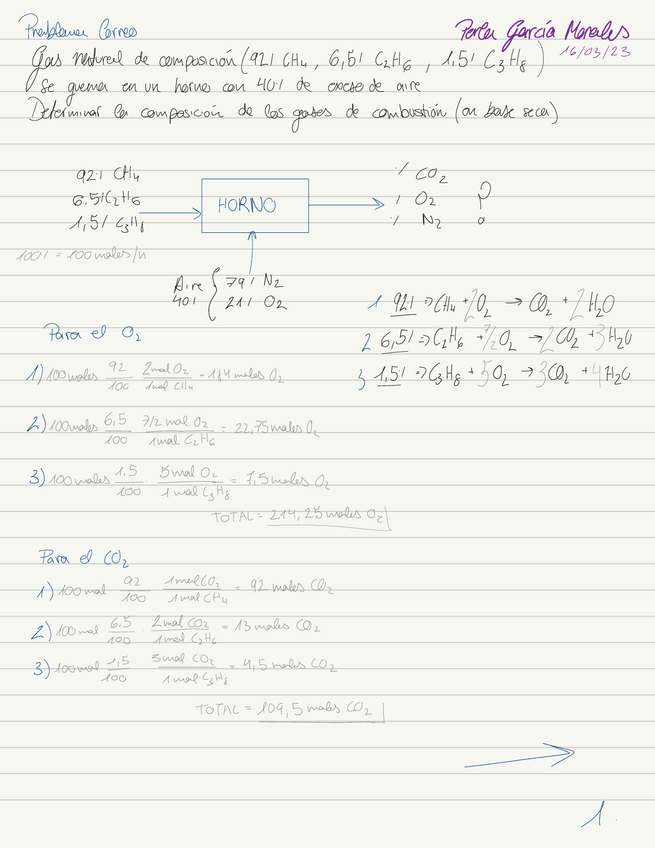 Problema Correo
Perla García Morales
16/03/23
Gas natural de composición (92% CH4, 6,5% C2H6, 1,5% C3H8)
Se quema en un horno con 40% de exceso de aire
Determinar la composición de los gases de combustión (en base seca)
92% CH4
6.5% C2H6
1,5% C3H8
HORNO
% CO2
% O2 ?
% N2
100% = 100 moles/h
Aire 40% { 79% N2
21% O2
1 92% => CH4 + 2O2 → CO2 + 2H2O
2 6,5% => C2H6 + 7/2O2 → 2CO2 + 3H2O
3 1,5% => C3H8 + 5O2 → 3CO2 + 4H2O
Para el O2
1) 100 moles 92/100 2mol O2/1mol CH4 = 184 moles O2
2) 100 moles 6,5/100 7/2 mol O2/1mol C2H6 = 22,75 moles O2
3) 100 moles 1.5/100 · 5mol O2/1 mol C3H8 = 7,5 moles O2
TOTAL = 214,25 moles O2
Para el CO2
1) 100 mol 92/100 1mol CO2/1mol CH4 = 92 moles CO2
2) 100 mol 6.5/100 · 2mol CO2/1mol C2H6 = 13 moles CO2
3) 100 mol 1,5/100 3mol CO2/1 mol C3H8 = 4,5 moles CO2
TOTAL = 109,5 moles CO2
1.